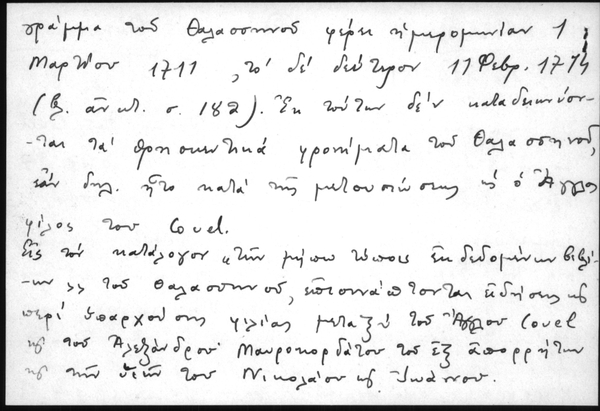 γράμμα τοῦ Θαλασσηνοῦ φέρει ἡμερομηνίαν 1
Μαρτίου 1711, τὸ δὲ δεύτερον 11 Φεβρ. 1714
(ἔ. ἀν. κτ. σ. 182). Ἐκ τούτων δὲν καταδεικνύον-
-ται τὰ θρησκευτικά φρονήματα τοῦ Θαλασσηνοῦ,
ἐὰν δηλ. ἦτο κατὰ τῆς μετουσιώσεως ὡς ὁ Ἄγγλος
φίλος του Covel.
Εἰς τὸν κατάλογον «τῶν μήπω τύποις ἐκδεδομένων βιβλί-
-ων» τοῦ Θαλασσηνοῦ, ἐπισυνάπτονται εἰδήσεις
περὶ ὑπαρχούσης φιλίας μεταξὺ τοῦ Ἄγγλου Covel
καὶ τοῦ Ἀλεξάνδρου Μαυροκορδάτου τοῦ ἐξ ἀπορρήτων
καὶ τῶν υἱῶν του Νικολάου καὶ Ἰωάννου.